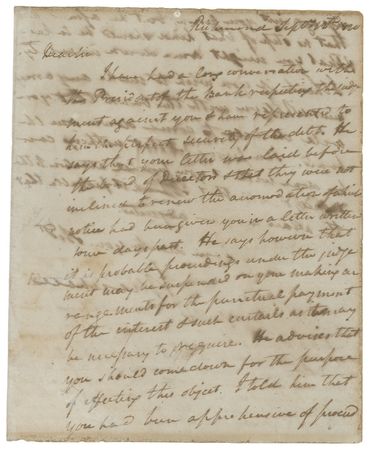 Richmond Sept 1820
Dear Sir
I have had a long conversation with
the President of the bank respecting the judg
ment against you & have represented to
him the perfect security of the debt. He
says that your letter was laid before
the board of directors & that they were not
inclined to renew the accomodation of which
notice had been given you in a letter written
some days past. He says however that
it is probable proceedings under the judg
ment may be suspended on your making ar
rangements for the punctual payment
of the interest & such curtails as they may
be necessary to require. He advises that
you should come down for the purpose
of effecting this object. I told him that
you had been apprehensive of proceed